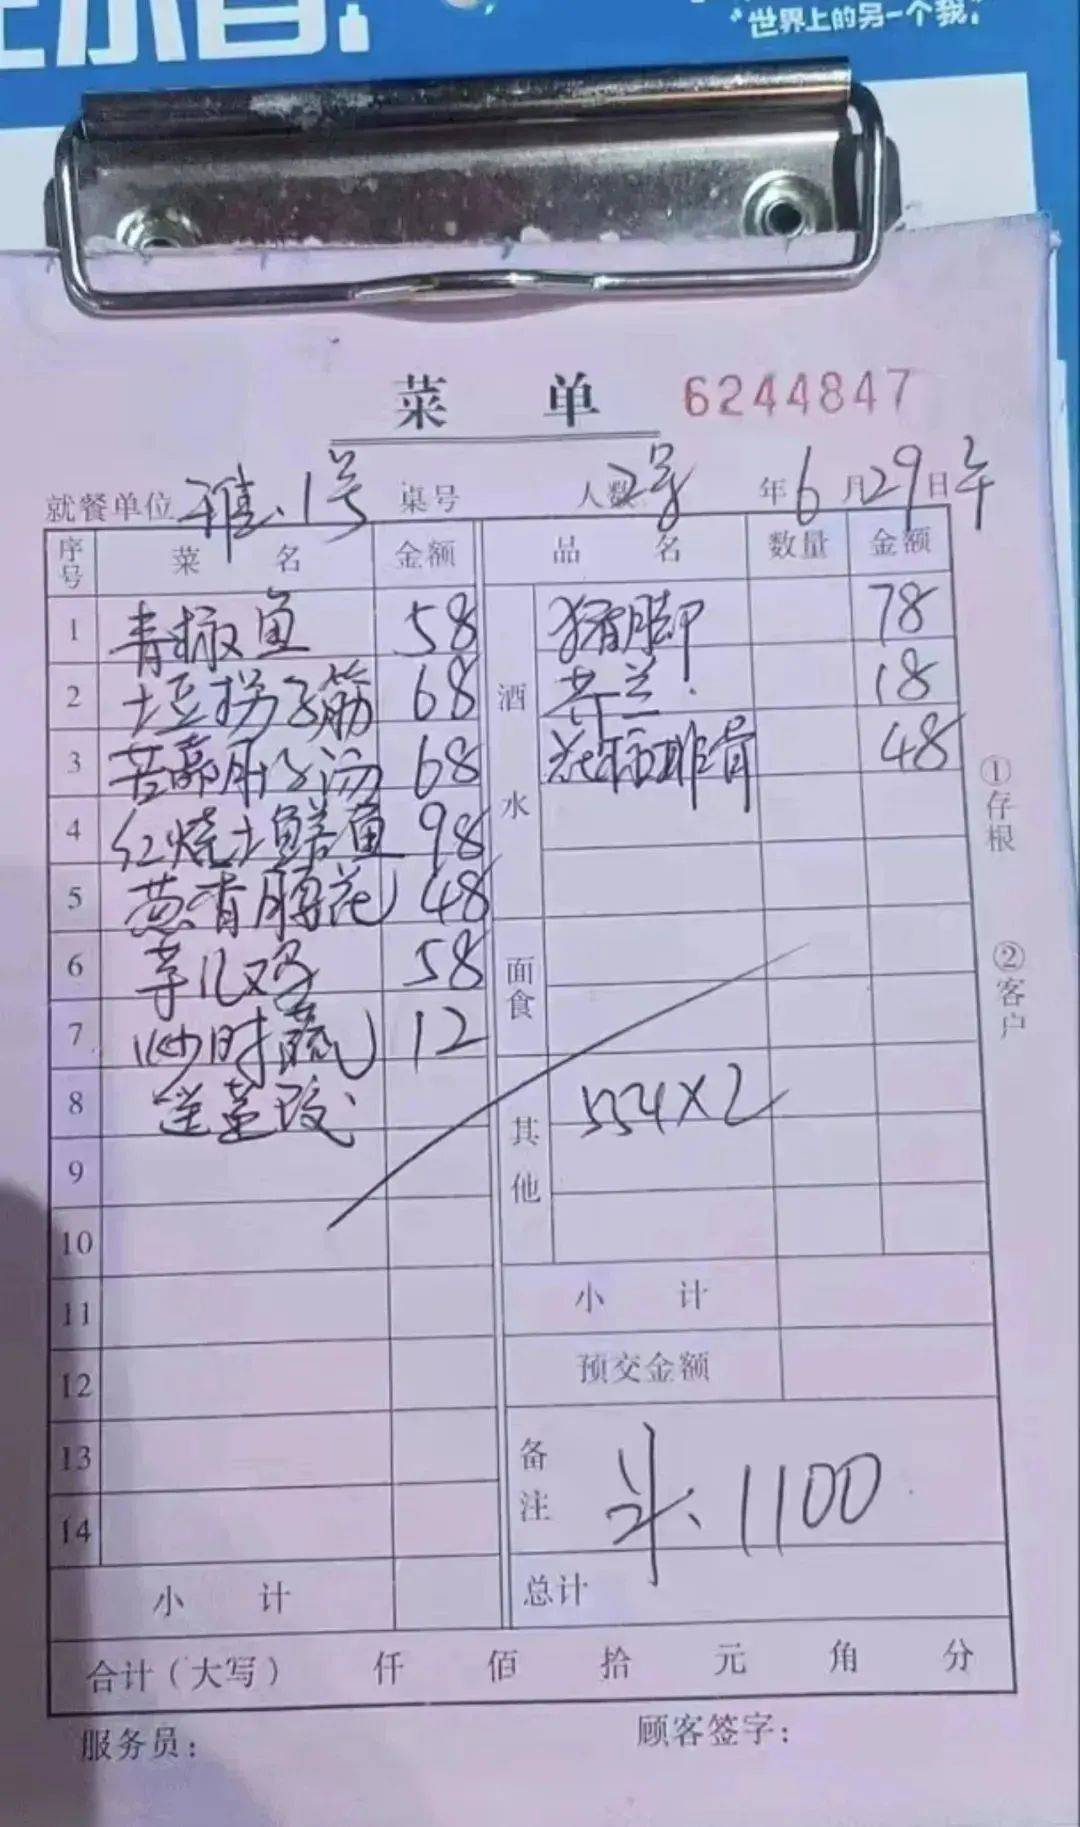 “世界上的另一个我”
菜 单 6244847
就餐单位 雅.1号 桌号 人数 2号 年 6 月 29 日 午
序号 菜 名 金额 品 名 数量 金额
1 青椒鱼 58 酒水 猪脚 78
2 土豆拐子筋 68 芥兰 18
3 肚子汤 68 排骨 48
4 红烧土鳝鱼 98
5 葱香腰花 48
6 芋儿鸡 58 面食
7 炒时蔬 12
8 554×2 其他
9
10
11 小 计
12 预交金额
13 备注 1100
14
小 计 总计
合计(大写) 仟 佰 拾 元 角 分
服务员: 顾客签字:
①存根
②客户